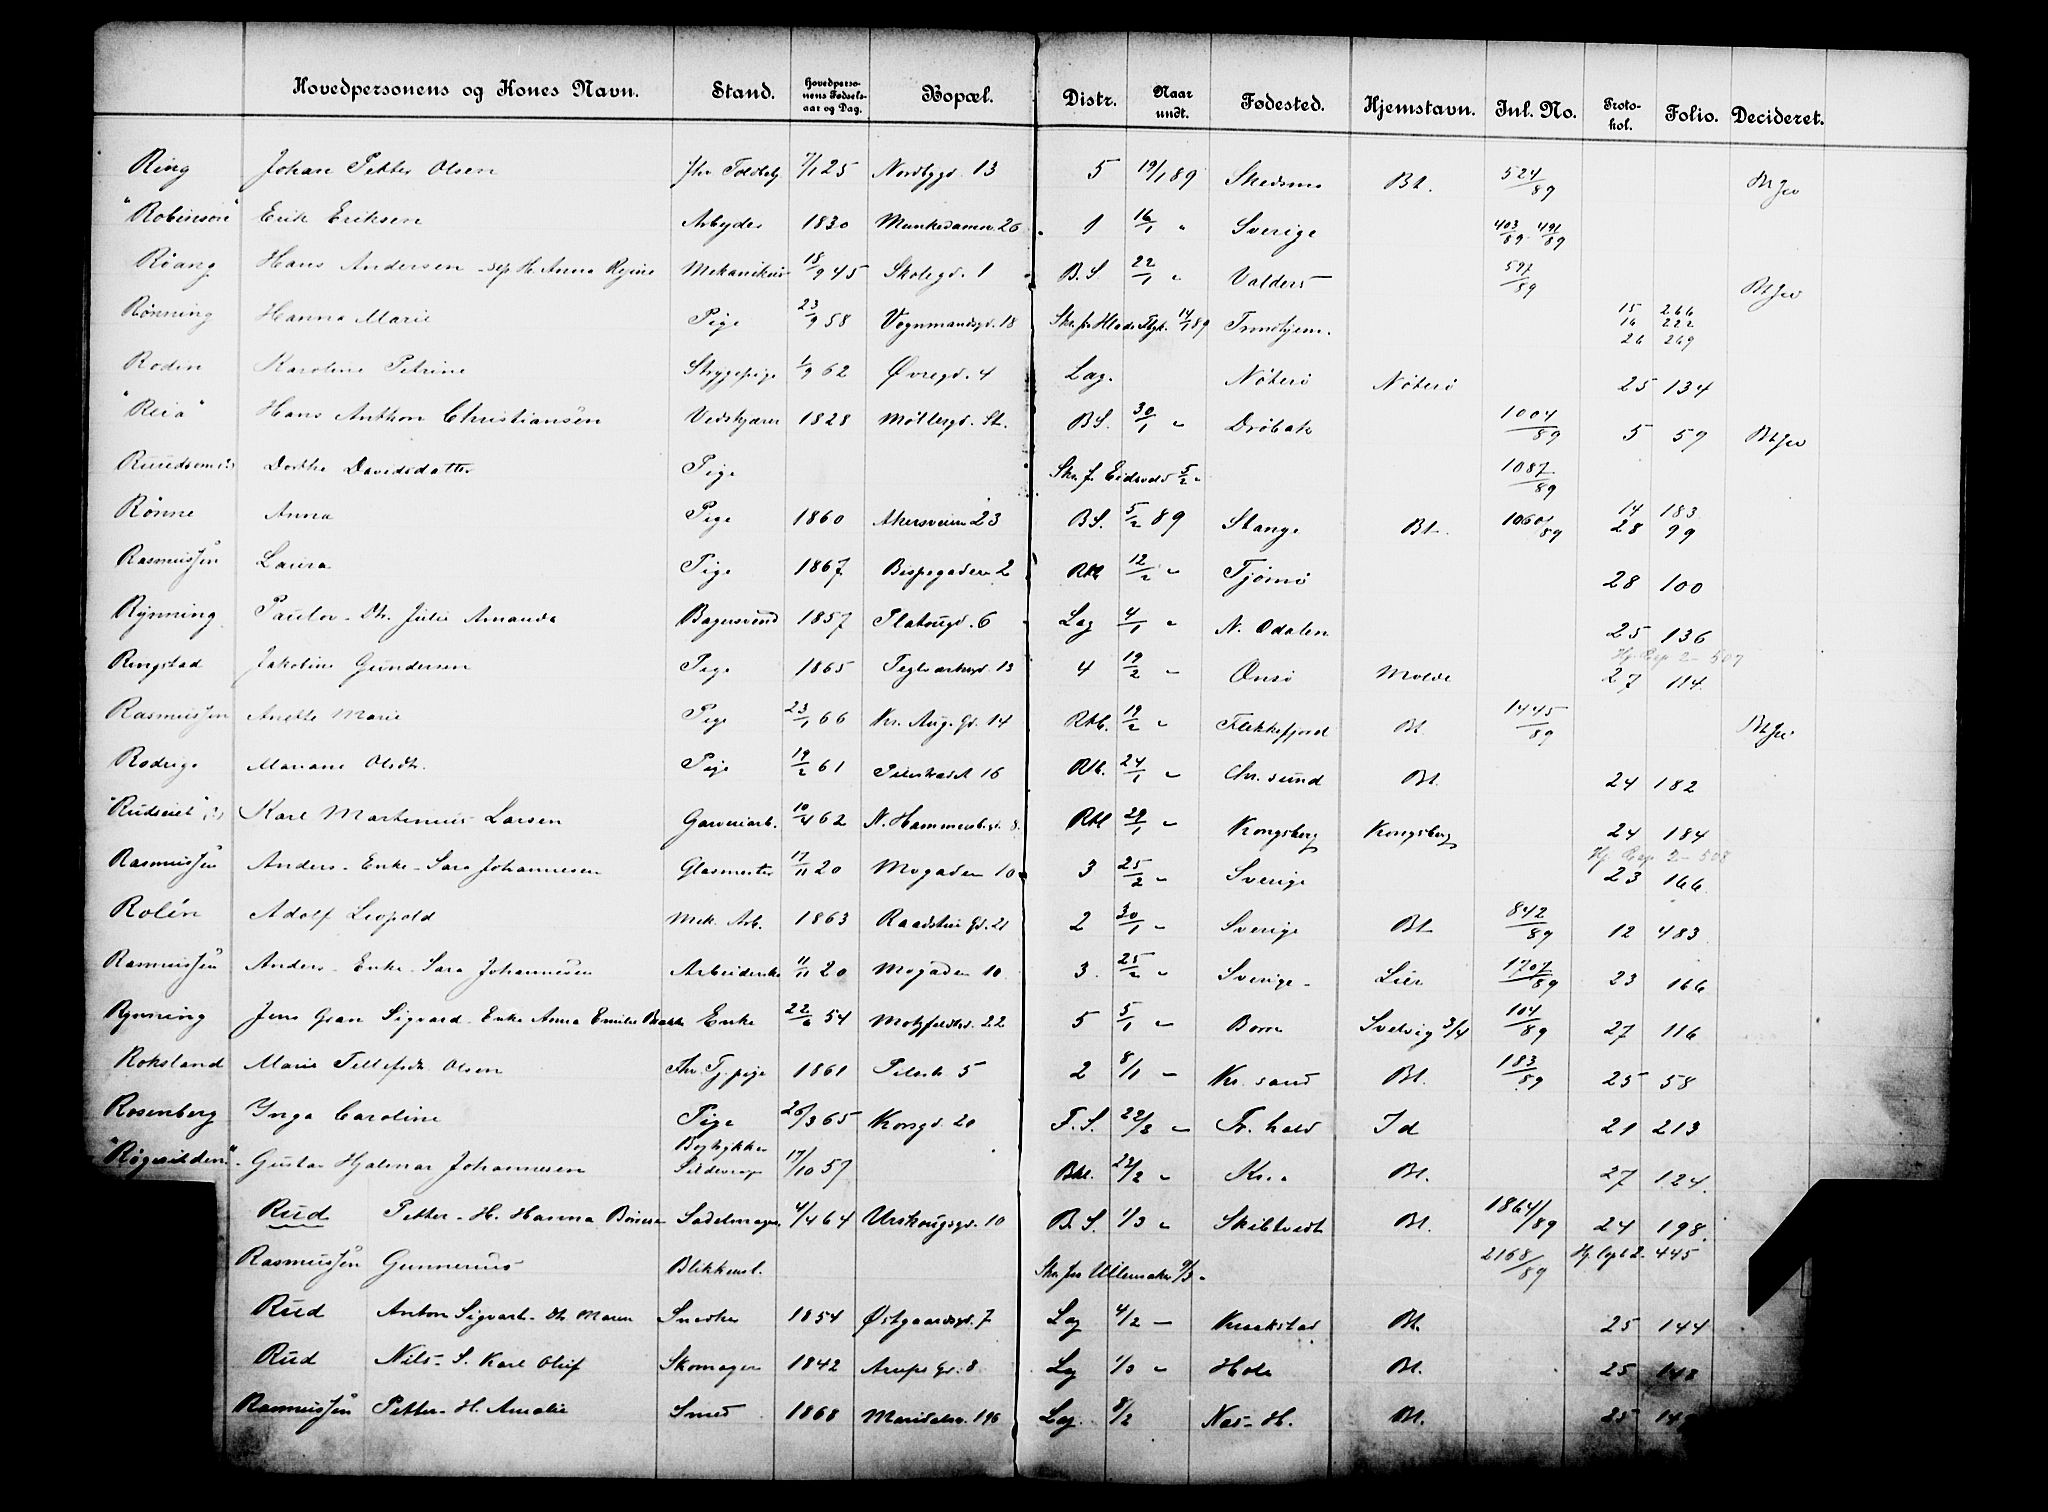 Hovedpersonens og Kones Navn. Stand. Hovedpersonens Fødselsaar og Dag. Bopæl. Distr. Naar undt. Fødested. Hjemstavn. Inl. No. Protokol. Folio. Decideret.
Ring Johan Petter Olsen 7/1 25 Nordbygd. 13 5 19/1 89 Skedsmo Bt. 524/89
"Robinson" Erik Eriksen Arbyder 1830 Munkedamsv. 26 1 16/1 " Sverige 403/89 491/89
Röang Hans Andersen - sep H. Anna Regine Mekanikus 18/9 45 Skolegd. 1 B.S 22/1 " Valders 597/89
Rønning Hanna Marie Pige 23/9 58 Vognmandsgd. 18 14/1 89 Trondhjem. 15 266
16 222
26 269
Rodin Karoline Petrine Strygepige 1/9 62 Øvregd. 4 Lag. Nöterö Nöterö 25 134
"Reia" Hans Anthon Christiansen Vedskjærer 1828 Möllergd. B.S. 30/1 " Dröbak 1004/89 5 59
Dorthe Davidsdatter Pige Skr. f. Eidsvold 5/2 " 1087/89
Rönne Anna Pige 1860 Akersveien 23 B.S. 5/2 89 Stange Bt. 1060/89 14 183
28 99
Rasmussen Laura Pige 1867 Bispegaden 2 Rtl 12/2 " Tjömö 28 100
Rynning Paulov - Dtr. Julie Amanda Bagersvend 1857 Platougd. 6 Lag 4/1 " N. Odalen 25 136
Ringstad Jakobine Gundersen Pige 1865 Teglværksgd. 13 4 19/2 " Onsö Molde Hj. Rep 2 - 507
27 114
Rasmussen Anette Marie Pige 23/1 66 Kr. Aug. Gd. 14 Rtl. 19/2 " Flekkefjord Bt. 1445/89
Rodrige Mariane Olsdtr. Pige 19/2 61 Pilestrædt 16 Rtl. 24/1 " Chr. sund Bt. 24 182
"Rudseiet" Karl Martinius Larsen Garveriarb. 10/4 62 N. Hammersb. gd. 8. Rtl 29/1 " Kongsberg Kongsberg 24 184
Rasmussen Anders - Enke - Sara Johannesen Glasmester 17/11 20 Mogaden 10 3 25/2 " Sverige Hj. Rep 2 - 508
23 166
Rolén Adolf Leopold Mek. Arb. 1863 Raadstue Gd. 21 2 30/1 " Sverige Bt 842/89 12 483
Rasmussen Anders - Enke - Sara Johannesen 11/11 20 Mogaden 10 3. 25/2 " Sverige - Lier 1707/89 23 166
Rynning Jens Gran Sigvard. Enke Anna Emilie Enke 22/6 54 Motzfeldtsd. 22 5 5/1 " Borre Svelvig 3/4 104/89 27 116
Roksland Marie Tellefsdtr Olsen Fhr. Tj. pige 1861 Pilestr. 5 2 8/1 " Kr. sand Bt. 183/89 25 58
Rosenberg Inga Caroline Pige 26/3 65 Kongd. 20 F.S. 22/2 " Fr. hald Id 21 213
Gustav Hjalmar Johannesen 17/10 57 22/2 " Kr.a Bt. 27 124.
Rud Petter - H. Hanna Sadelmager 4/4 64 Urskougsgd. 10 B.S. 1/3 " Skibtvedt Bt. 1864/89 24 198.
Rasmussen Gunnerius Blikkensl. Skr. fra Ullensaker 9/3 " 2168/89 445
Rud Anton Sigvart - Dtr Maren Snedker 1854 Østgaardsgd. 7 Lag 4/2 " Kraakstad Bt. 25 144
Rud Nils - S. Karl Oluf Skomager 1842 Arups Gd. 8 Lag 1/3 " Hole Bt. 25 148
Rasmussen Petter - H. Amalie Smed 1868 Maridalsv. 196 Lag. 8/2 Nes - H. Bt. 25